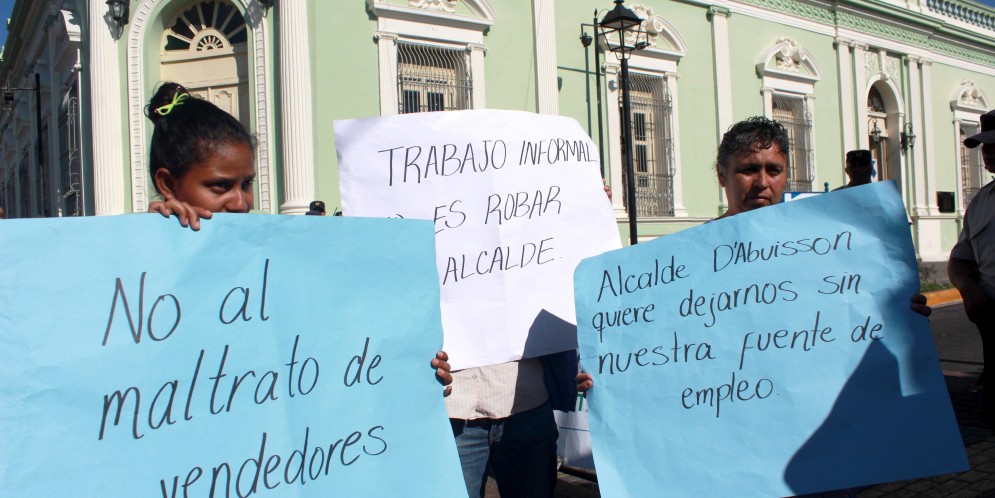 No al
maltrato de
vendedores
TRABAJO INFORMAL
ES ROBAR
ALCALDE.
Alcalde D'Abuisson
quiere dejarnos sin
nuestra fuente de
empleo.